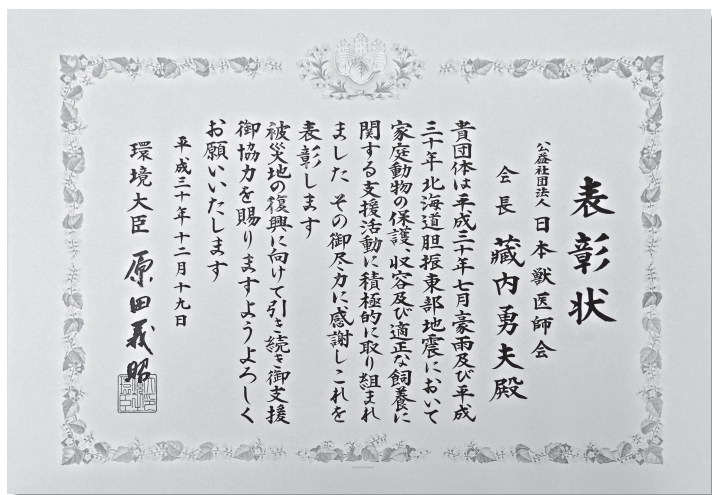 表彰状
公益社団法人 日本獣医師会
会長 藏内勇夫殿
貴団体は平成三十年七月豪雨及び平成
三十年北海道胆振東部地震において
家庭動物の保護、収容及び適正な飼養に
関する支援活動に積極的に取り組まれ
ました その御尽力に感謝しこれを
表彰します
被災地の復興に向けて引き続き御支援
御協力を賜りますようよろしく
お願いいたします
平成三十年十二月十九日
環境大臣 原田義昭